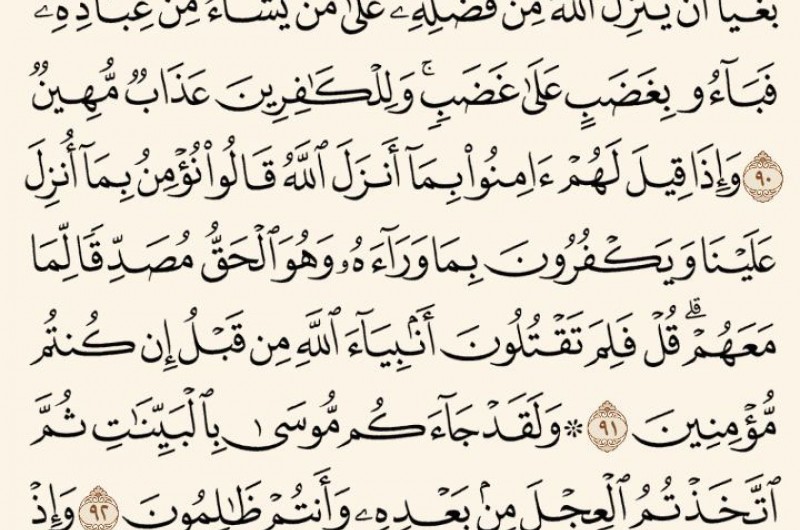 بَغۡيًا أَن يُنَزِّلَ ٱللَّهُ مِن فَضۡلِهِۦ عَلَىٰ مَن يَشَآءُ مِنۡ عِبَادِهِۦ
فَبَآءُو بِغَضَبٍ عَلَىٰ غَضَبٍۚ وَلِلۡكَٰفِرِينَ عَذَابٌ مُّهِينٌ
٩٠ وَإِذَا قِيلَ لَهُمۡ ءَامِنُواْ بِمَآ أَنزَلَ ٱللَّهُ قَالُواْ نُؤۡمِنُ بِمَآ أُنزِلَ
عَلَيۡنَا وَيَكۡفُرُونَ بِمَا وَرَآءَهُۥ وَهُوَ ٱلۡحَقُّ مُصَدِّقًا لِّمَا
مَعَهُمۡۗ قُلۡ فَلِمَ تَقۡتُلُونَ أَنۢبِيَآءَ ٱللَّهِ مِن قَبۡلُ إِن كُنتُم
مُّؤۡمِنِينَ ٩١ ۞ وَلَقَدۡ جَآءَكُم مُّوسَىٰ بِٱلۡبَيِّنَٰتِ ثُمَّ
ٱتَّخَذۡتُمُ ٱلۡعِجۡلَ مِنۢ بَعۡدِهِۦ وَأَنتُمۡ ظَٰلِمُونَ ٩٢ وَإِذۡ